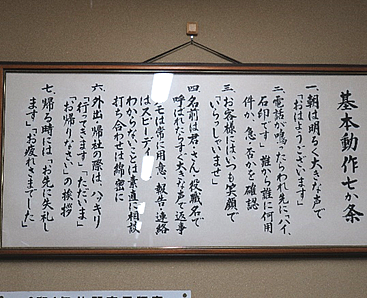 基本動作七か条
一、朝は明るく大きな声で
「おはようございます」
二、電話が鳴ったらわれ先に「ハイ、
石印です」誰から誰に何用
件か、急、否かを確認
三、お客様にはいつも笑顔で
「いらっしゃいませ」
四、名前は君・さん・役職名で
呼ばれたらすぐ大きな声で返事
メモは常に用意、報告・連絡
はスピーディー
わからないことは素直に相談
打ち合わせは綿密に
六、外出、帰社の際は、ハッキリ
「行ってきます」「ただいま」
「お帰りなさい」の挨拶
七、帰る時には「お先に失礼し
ます」「お疲れさまでした」